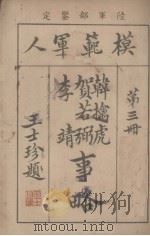 陸軍部鑒定
模範軍人
第三冊
韓擒虎
賀若弼
李靖
事略
王士珍題